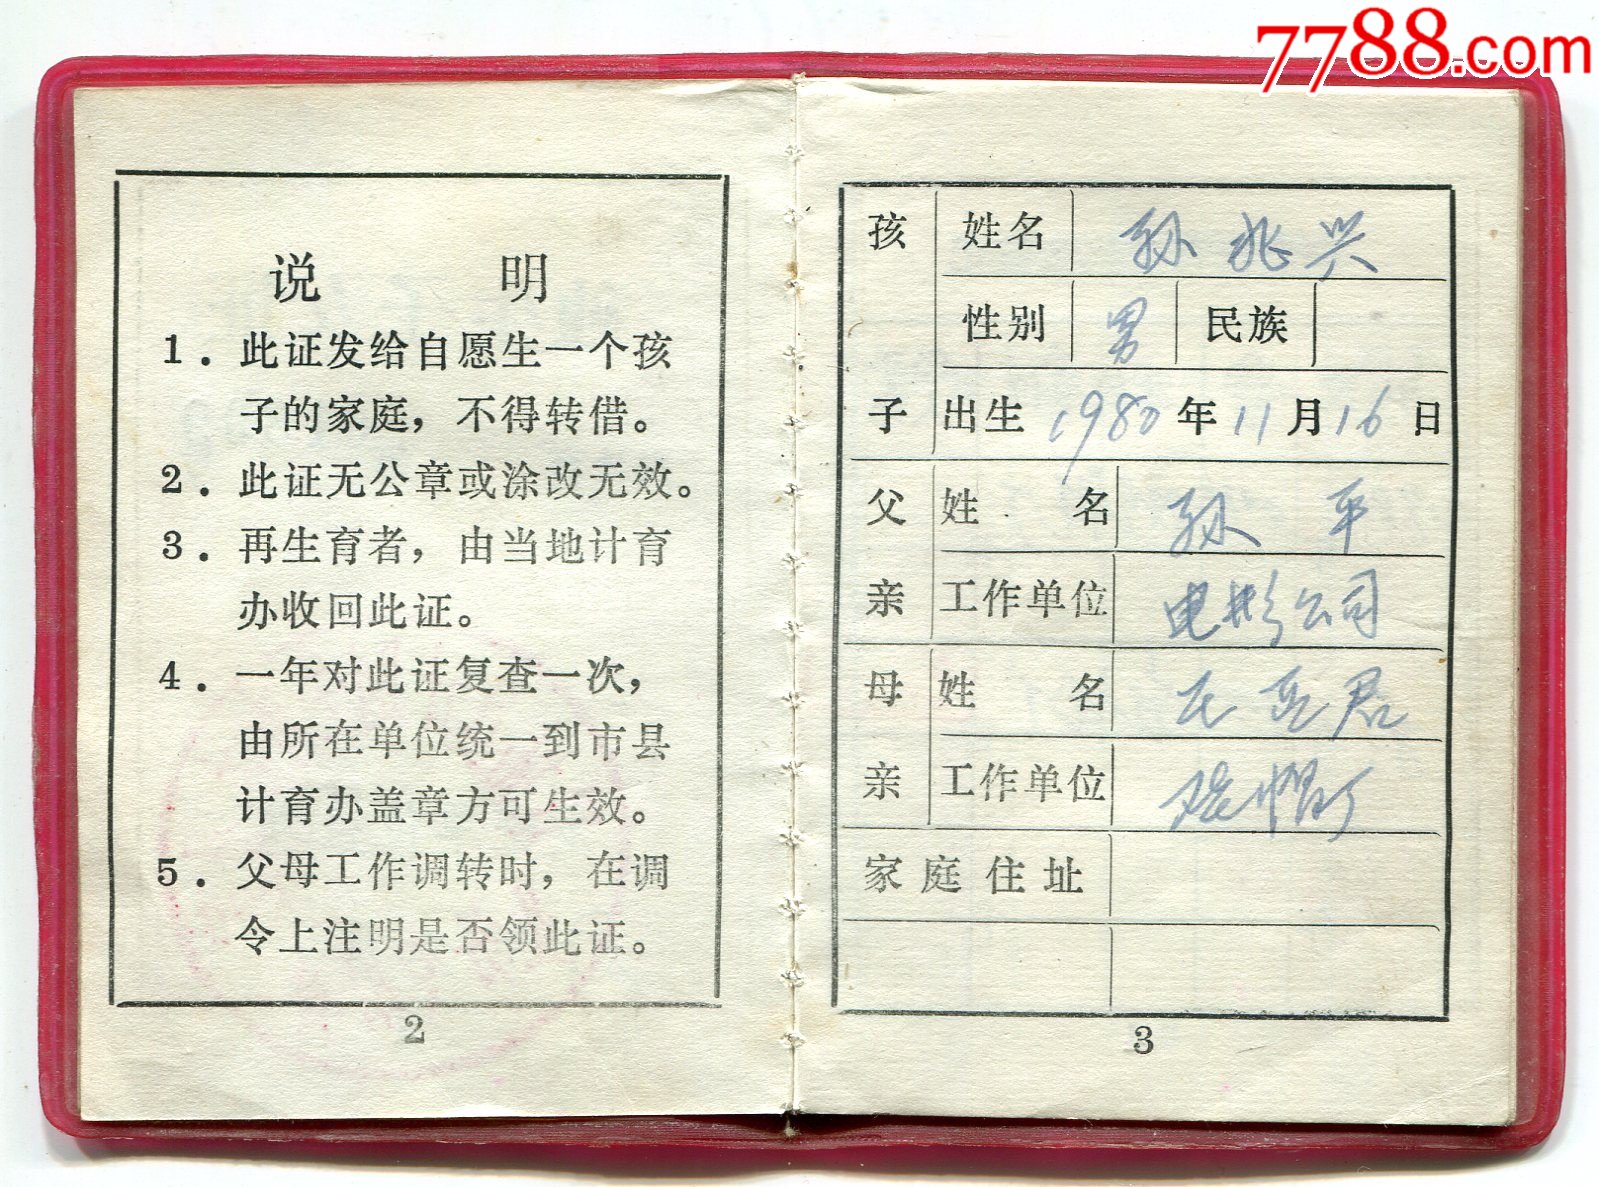 7788.com
说 明
1．此证发给自愿生一个孩
子的家庭，不得转借。
2．此证无公章或涂改无效。
3．再生育者，由当地计育
办收回此证。
4．一年对此证复查一次，
由所在单位统一到市县
计育办盖章方可生效。
5．父母工作调转时，在调
令上注明是否领此证。
2
孩子 姓名 孙兆兴
性别 男 民族
出生 1980年11月16日
父亲 姓名 孙平
工作单位 电影公司
母亲 姓名 君
工作单位
家庭住址
3